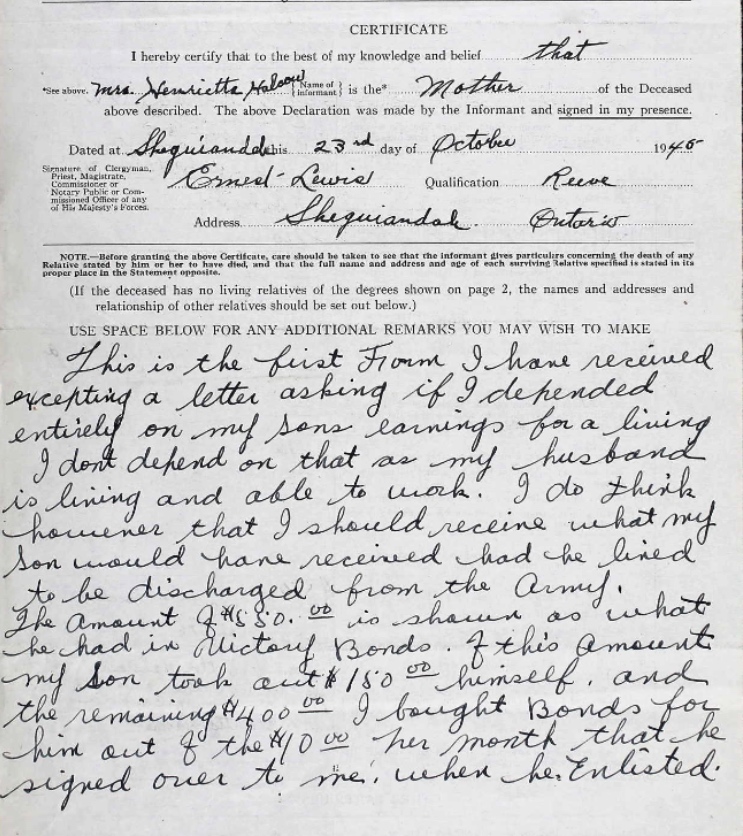 CERTIFICATE
I hereby certify that to the best of my knowledge and belief that
*See above. Mrs. Henrietta {Name of Informant} is the* Mother of the Deceased
above described. The above Declaration was made by the Informant and signed in my presence.
Dated at Sheguiandah this 23rd day of October 1945
Signature of Clergyman,
Priest, Magistrate,
Commissioner or
Notary Public or Com-
missioned Officer of any
of His Majesty's Forces.
Ernest Lewis Qualification Reeve
Address Sheguiandah. Ontario
NOTE.—Before granting the above Certificate, care should be taken to see that the informant gives particulars concerning the death of any
Relative stated by him or her to have died, and that the full name and address and age of each surviving Relative specified is stated in its
proper place in the Statement opposite.
(If the deceased has no living relatives of the degrees shown on page 2, the names and addresses and
relationship of other relatives should be set out below.)
USE SPACE BELOW FOR ANY ADDITIONAL REMARKS YOU MAY WISH TO MAKE
This is the first Form I have received
excepting a letter asking if I depended
entirely on my sons earnings for a living
I dont depend on that as my husband
is living and able to work. I do think
however that I should receive what my
Son would have received had he lived
to be discharged from the Army.
The Amount of $550.00 is shown as what
he had in Victory Bonds. Of this Amount
my Son took out $150 00 himself. and
the remaining $400 00 I bought Bonds for
him out of the $10 00 per month that he
signed over to me. when he Enlisted.